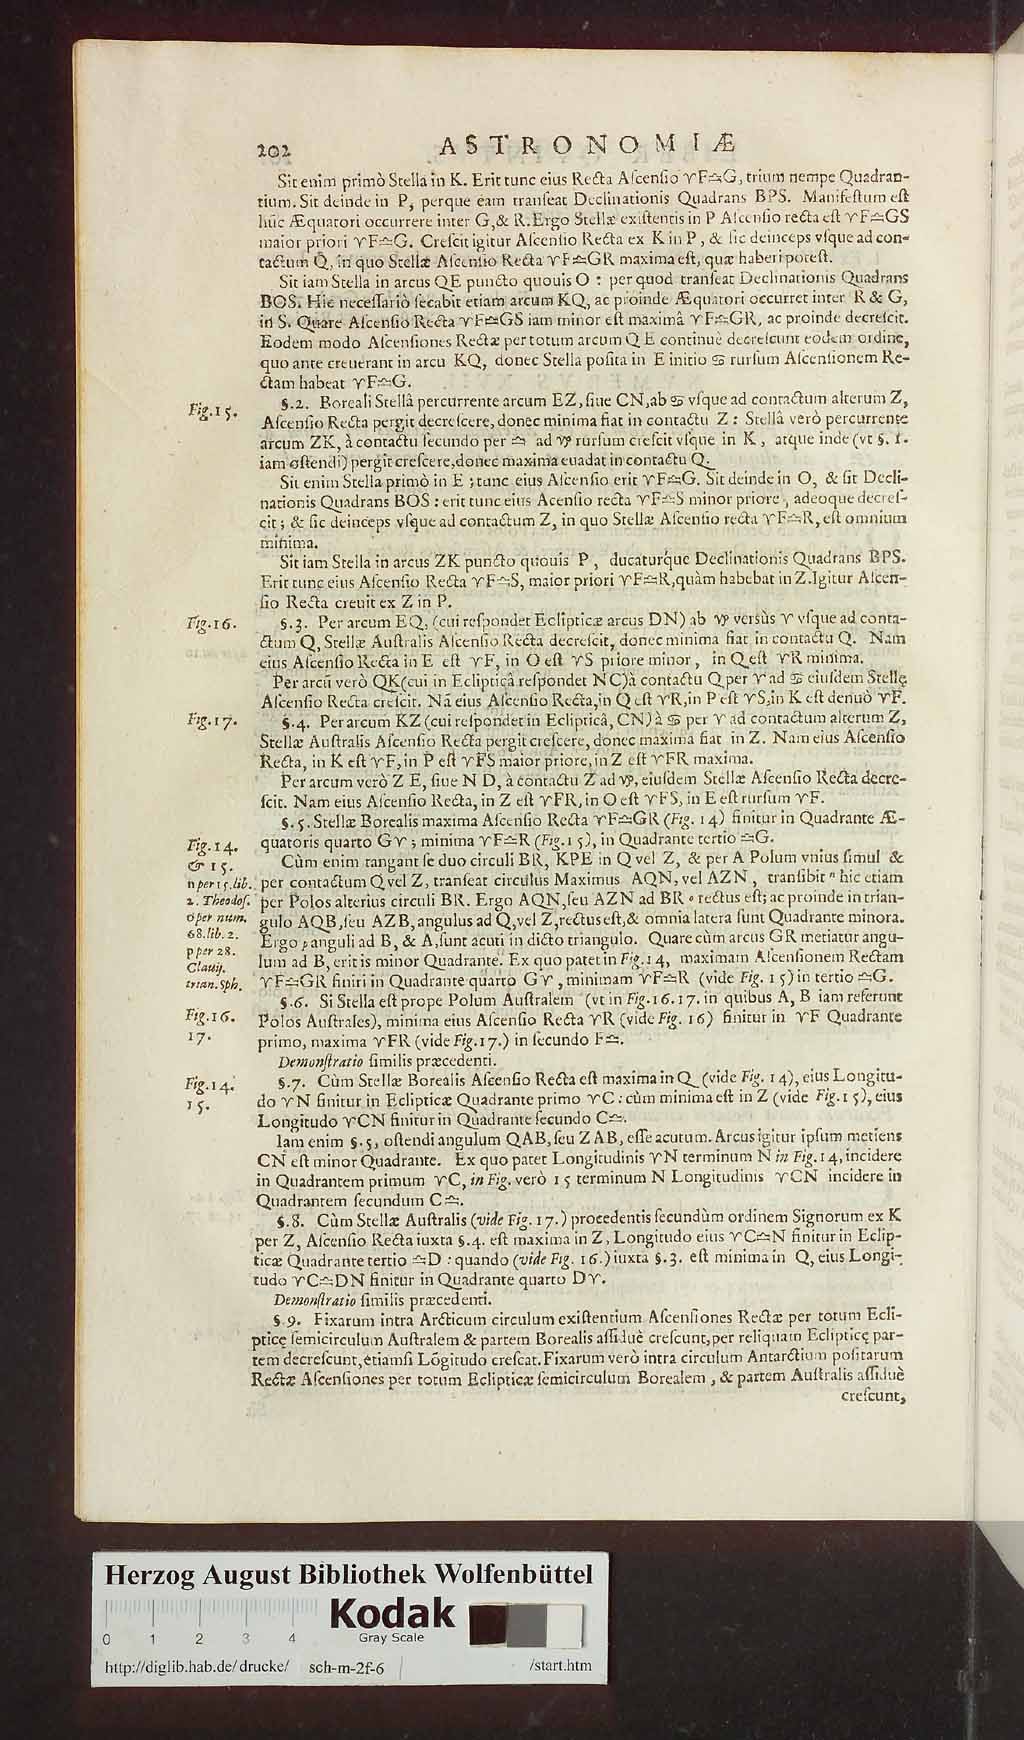 202 ASTRONOMIÆ
Sit enim primò Stella in K. Erit tunc eius Recta Ascensio ♈F♎G, trium nempe Quadran-
tium. Sit deinde in P, perque eam transeat Declinationis Quadrans BPS. Manifestum est
hũc Æquatori occurrere inter G,& R. Ergo Stellæ existentis in P Ascensio recta est ♈F♎GS
maior priori ♈F♎G. Crescit igitur Ascensio Recta ex K in P, & sic deinceps vsque ad con-
tactum Q, in quo Stellæ Ascensio Recta ♈F♎GR maxima est, quæ haberi potest.
Sit iam Stella in arcus QE puncto quouis O : per quod transeat Declinationis Quadrans
BOS. Hic necessariò secabit etiam arcum KQ, ac proinde Æquatori occurret inter R & G,
in S. Quare Ascensio Recta ♈F♎GS iam minor est maximâ ♈F♎GR, ac proinde decrescit.
Eodem modo Ascensiones Rectæ per totum arcum QE continuè decrescunt eodem ordine,
quo ante creuerant in arcu KQ, donec Stella posita in E initio ♋ rursum Ascensionem Re-
ctam habeat ♈F♎G.
Fig.15. §.2. Boreali Stellâ percurrente arcum EZ, siue CN, ab ♋ vsque ad contactum alterum Z,
Ascensio Recta pergit decrescere, donec minima fiat in contactu Z : Stellâ verò percurrente
arcum ZK, à contactu secundo per ♎ ad ♑ rursum crescit vsque in K, atque inde (vt §. 1.
iam ostendi) pergit crescere, donec maxima euadat in contactu Q.
Sit enim Stella primò in E ; tunc eius Ascensio erit ♈F♎G. Sit deinde in O, & sit Decli-
nationis Quadrans BOS : erit tunc eius Acensio recta ♈F♎S minor priore, adeoque decres-
cit ; & sic deinceps vsque ad contactum Z, in quo Stellæ Ascensio recta ♈F♎R, est omnium
minima.
Sit iam Stella in arcus ZK puncto quouis P, ducaturque Declinationis Quadrans BPS.
Erit tunc eius Ascensio Recta ♈F♎S, maior priori ♈F♎R, quàm habebat in Z. Igitur Ascen-
sio Recta creuit ex Z in P.
Fig.16. §.3. Per arcum EQ, (cui respondet Eclipticæ arcus DN) ab ♑ versùs ♈ vsque ad conta-
ctum Q, Stellæ Australis Ascensio Recta decrescit, donec minima fiat in contactu Q. Nam
eius Ascensio Recta in E est ♈F, in O est ♈S priore minor, in Q est ♈R minima.
Per arcũ verò QK (cui in Eclipticâ respondet NC) à contactu Q per ♈ ad ♋ eiusdem Stellę
Ascensio Recta crescit. Nã eius Ascensio Recta, in Q est ♈R, in P est ♈S, in K est denuò ♈F.
Fig.17. §.4. Per arcum KZ (cui respondet in Eclipticâ, CN) à ♋ per ♈ ad contactum alterum Z,
Stellæ Australis Ascensio Recta pergit crescere, donec maxima fiat in Z. Nam eius Ascensio
Recta, in K est ♈F, in P est ♈FS maior priore, in Z est ♈FR maxima.
Per arcum verò ZE, siue ND, à contactu Z ad ♑, eiusdem Stellæ Ascensio Recta decre-
scit. Nam eius Ascensio Recta, in Z est ♈FR, in O est ♈FS, in E est rursum ♈F.
§.5. Stellæ Borealis maxima Ascensio Recta ♈F♎GR (Fig. 14) finitur in Quadrante Æ-
Fig.14. quatoris quarto G♈ ; minima ♈F♎R (Fig.15), in Quadrante tertio ♎G.
& 15. Cùm enim tangant se duo circuli BR, KPE in Q vel Z, & per A Polum vnius simul &
n per 15.lib. per contactum Q vel Z, transeat circulus Maximus AQN, vel AZN, transibit ⁿ hic etiam
2. Theodos. per Polos alterius circuli BR. Ergo AQN, seu AZN ad BR º rectus est; ac proinde in trian-
o per num. gulo AQB, seu AZB, angulus ad Q, vel Z, rectus est, & omnia latera sunt Quadrante minora.
68.lib. 2. Ergo p anguli ad B, & A, sunt acuti in dicto triangulo. Quare cùm arcus GR metiatur angu-
p per 28. lum ad B, erit is minor Quadrante. Ex quo patet in Fig.14, maximam Ascensionem Rectam
Clauij.
trian. Sph. ♈F♎GR finiri in Quadrante quarto G♈, minimam ♈F♎R (vide Fig. 15) in tertio ♎G.
§.6. Si Stella est prope Polum Australem (vt in Fig.16.17. in quibus A, B iam referunt
Fig.16. Polos Australes), minima eius Ascensio Recta ♈R (vide Fig. 16) finitur in ♈F Quadrante
17. primo, maxima ♈FR (vide Fig.17.) in secundo F♎.
Demonstratio similis præcedenti.
Fig.14. §.7. Cùm Stellæ Borealis Ascensio Recta est maxima in Q (vide Fig. 14), eius Longitu-
15. do ♈N finitur in Eclipticæ Quadrante primo ♈C : cùm minima est in Z (vide Fig.15), eius
Longitudo ♈CN finitur in Quadrante secundo C♎.
Iam enim §.5, ostendi angulum QAB, seu ZAB, esse acutum. Arcus igitur ipsum metiens
CN est minor Quadrante. Ex quo patet Longitudinis ♈N terminum N in Fig.14, incidere
in Quadrantem primum ♈C, in Fig. verò 15 terminum N Longitudinis ♈CN incidere in
Quadrantem secundum C♎.
§.8. Cùm Stellæ Australis (vide Fig. 17.) procedentis secundùm ordinem Signorum ex K
per Z, Ascensio Recta iuxta §.4. est maxima in Z, Longitudo eius ♈C♎N finitur in Eclip-
ticæ Quadrante tertio ♎D : quando (vide Fig. 16.) iuxta §.3. est minima in Q, eius Longi-
tudo ♈C♎DN finitur in Quadrante quarto D♈.
Demonstratio similis præcedenti.
§.9. Fixarum intra Arcticum circulum existentium Ascensiones Rectæ per totum Ecli-
pticę semicirculum Australem & partem Borealis assiduè crescunt, per reliquam Eclipticę par-
tem decrescunt, etiamsi Lõgitudo crescat. Fixarum verò intra circulum Antarctium positarum
Rectæ Ascensiones per totum Eclipticæ semicirculum Borealem, & partem Australis assiduè
crescunt,
Herzog August Bibliothek Wolfenbüttel
Kodak
Gray Scale
0 1 2 3 4
http://diglib.hab.de/drucke/ sch-m-2f-6 /start.htm